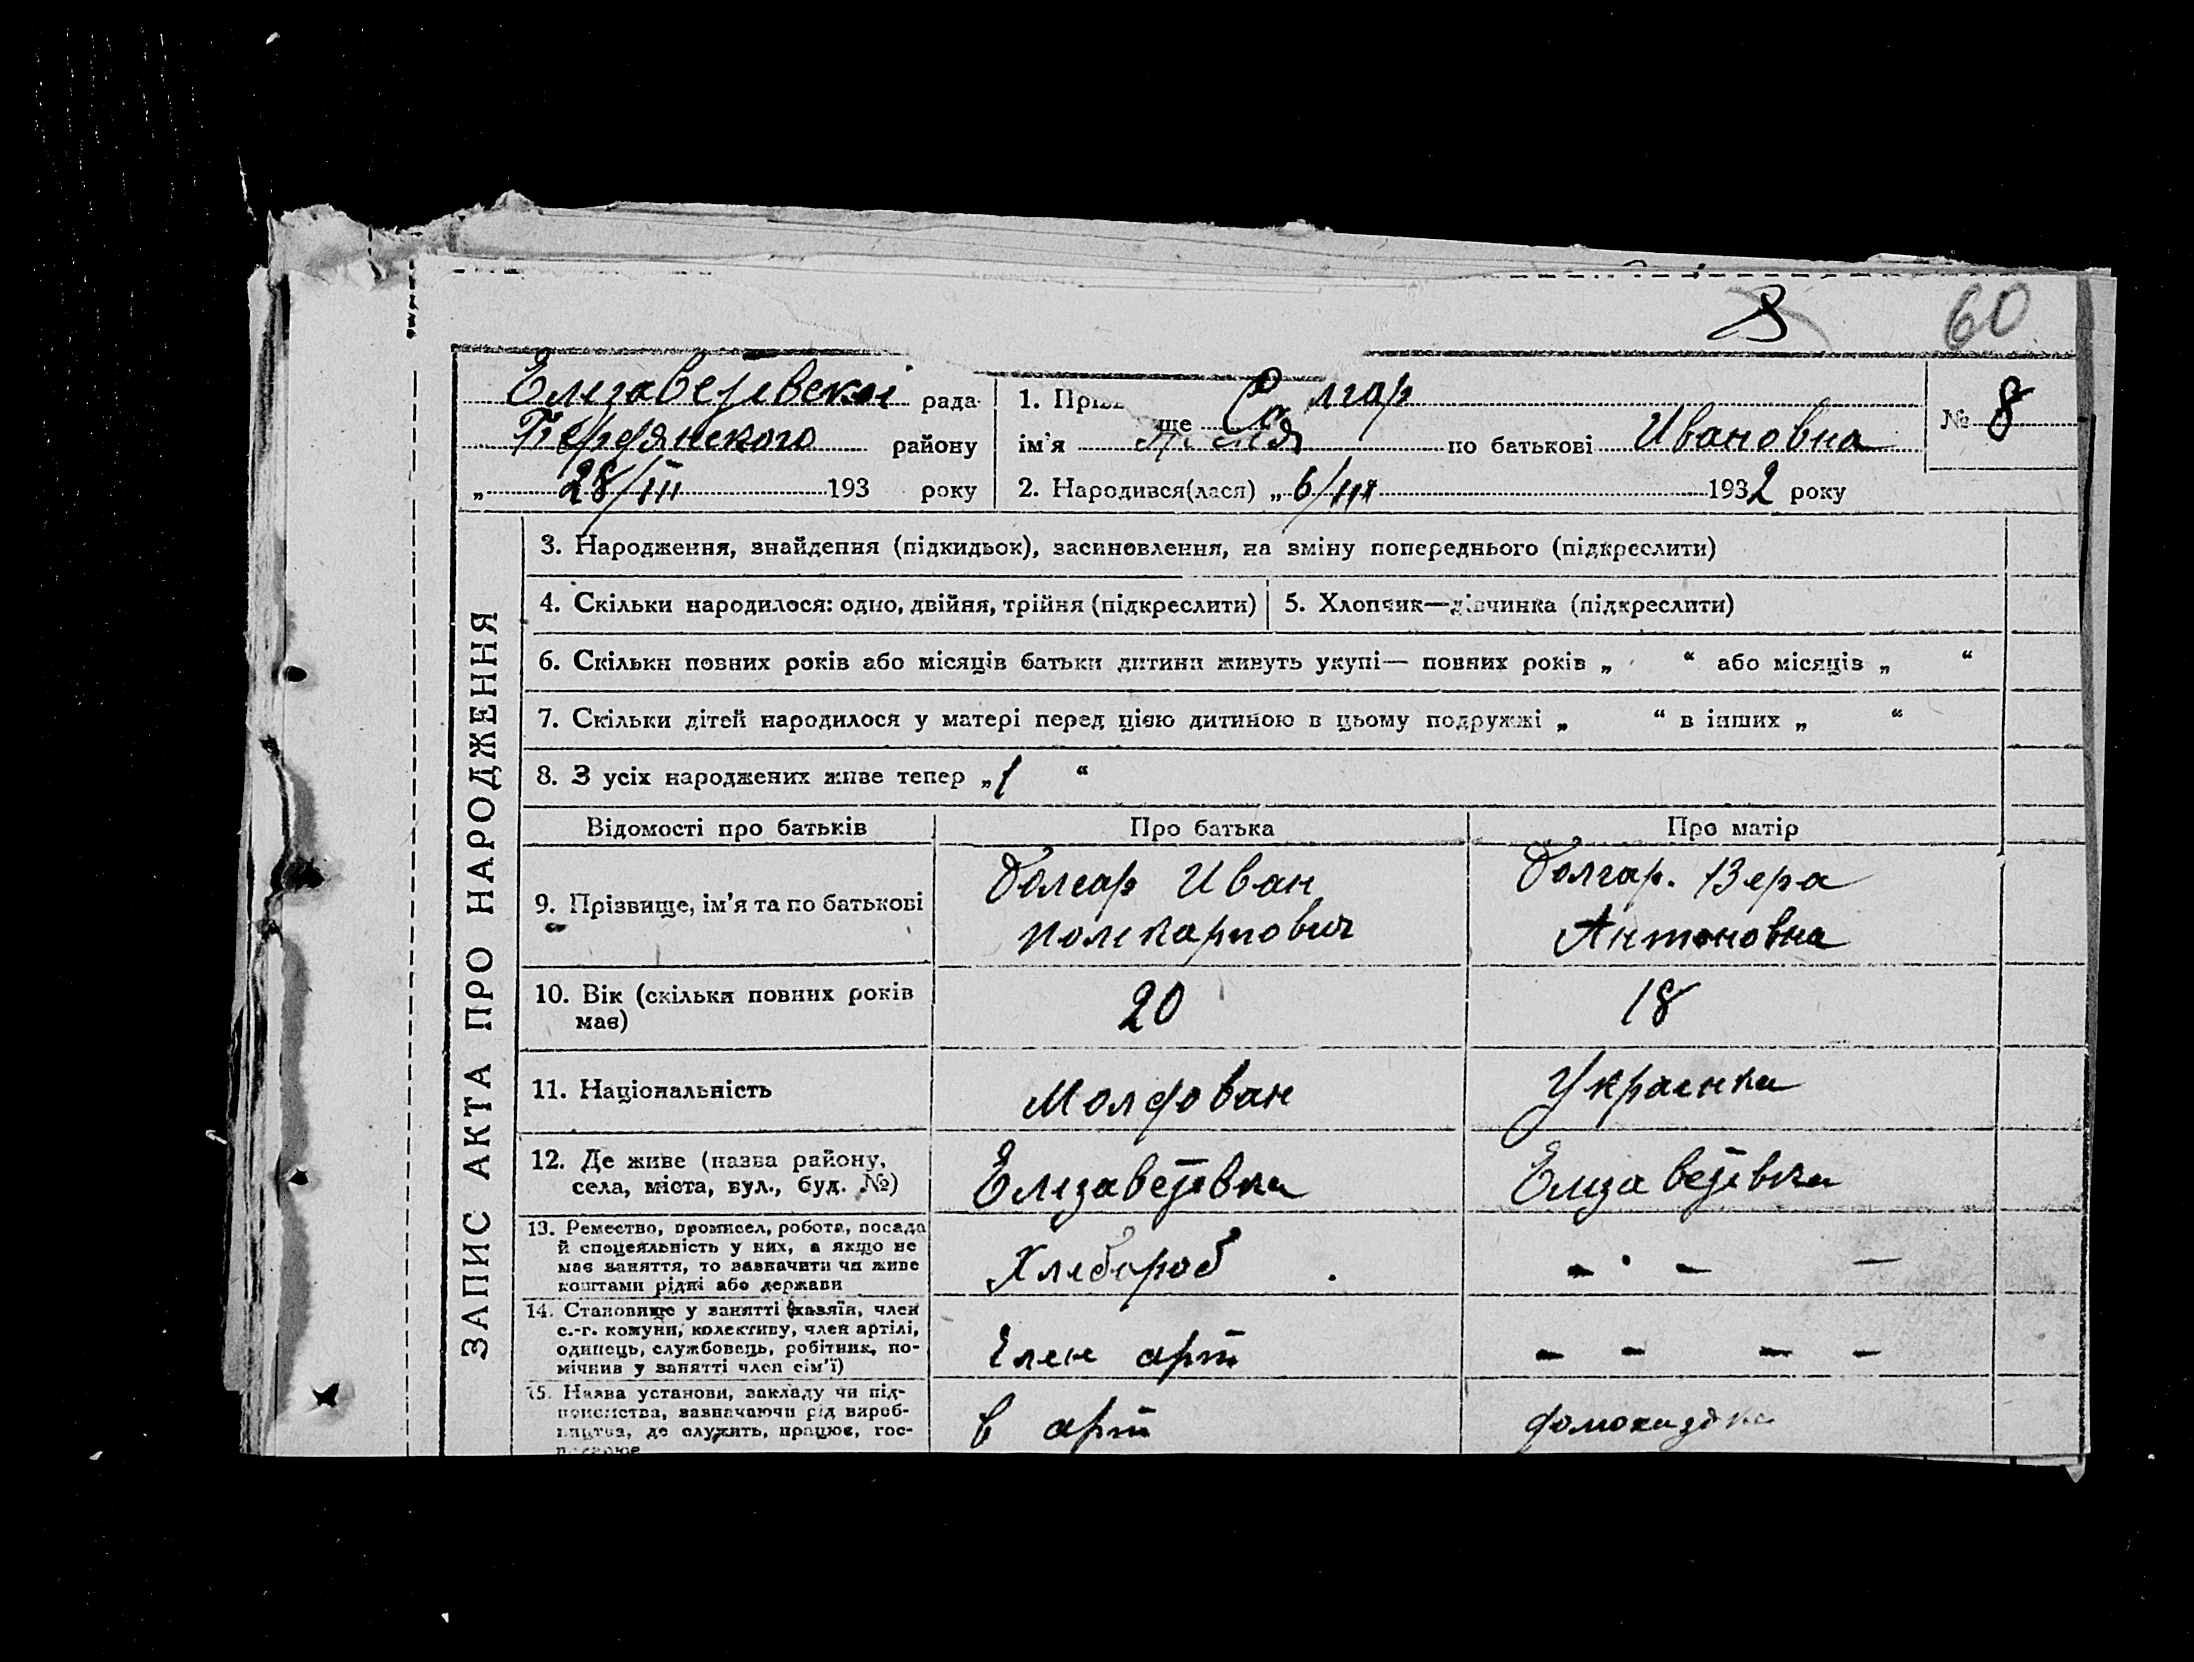 8 60
Елізаветівської рада
Бердянського району
„ 28/ІІІ 193 року
1. Пріз ще лгар
ім'я по батькові Ивановна
2. Народився(лася) „ 6/ІІІ 1932 року
№ 8
ЗАПИС АКТА ПРО НАРОДЖЕННЯ
3. Народження, знайдення (підкидьок), засиновлення, на зміну попереднього (підкреслити)
4. Скільки народилося: одно, двійня, трійня (підкреслити)
5. Хлопчик—дівчинка (підкреслити)
6. Скільки повних років або місяців батьки дитини живуть укупі— повних років „ “ або місяців „ “
7. Скільки дітей народилося у матері перед цією дитиною в цьому подружжі „ “ в інших „ “
8. З усіх народжених живе тепер „1 “
Відомості про батьків Про батька Про матір
9. Прізвище, ім'я та по батькові
Болгар Иван
Полікарпович
Болгар. Вера
Антоновна
10. Вік (скільки повних років
має)
20 18
11. Національність Молдован Украінка
12. Де живе (назва району,
села, міста, вул., буд. №)
Елізаветівка Елізаветівка
13. Ремество, промисел, робота, посада
й спеціяльність у них, а якщо не
має заняття, то зазначити чи живе
коштами рідні або держави
Хлебороб - - -
14. Становище у занятті (хазяїн, член
с.-г. комуни, колективу, член артілі,
одинець, службовець, робітник, по-
мічник у занятті член сім'ї)
Член арт - - - -
15. Назва установи, закладу чи під-
приємства, зазначаючи рід вироб-
ництва, де служить, працює, гос-
подарює
в арт домохазяйка